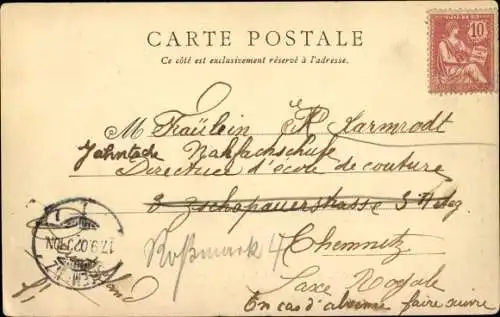 CARTE POSTALE
Ce côté est exclusivement réservé à l'adresse.
10
M Fräulein K Karmrodt
Nahfachschule
Directrice d'école de couture
3 Zschopauerstrasse 3
Roßmarkt 4
Chemnitz
Saxe Royale
En cas d'absence faire suivre
17.9.02